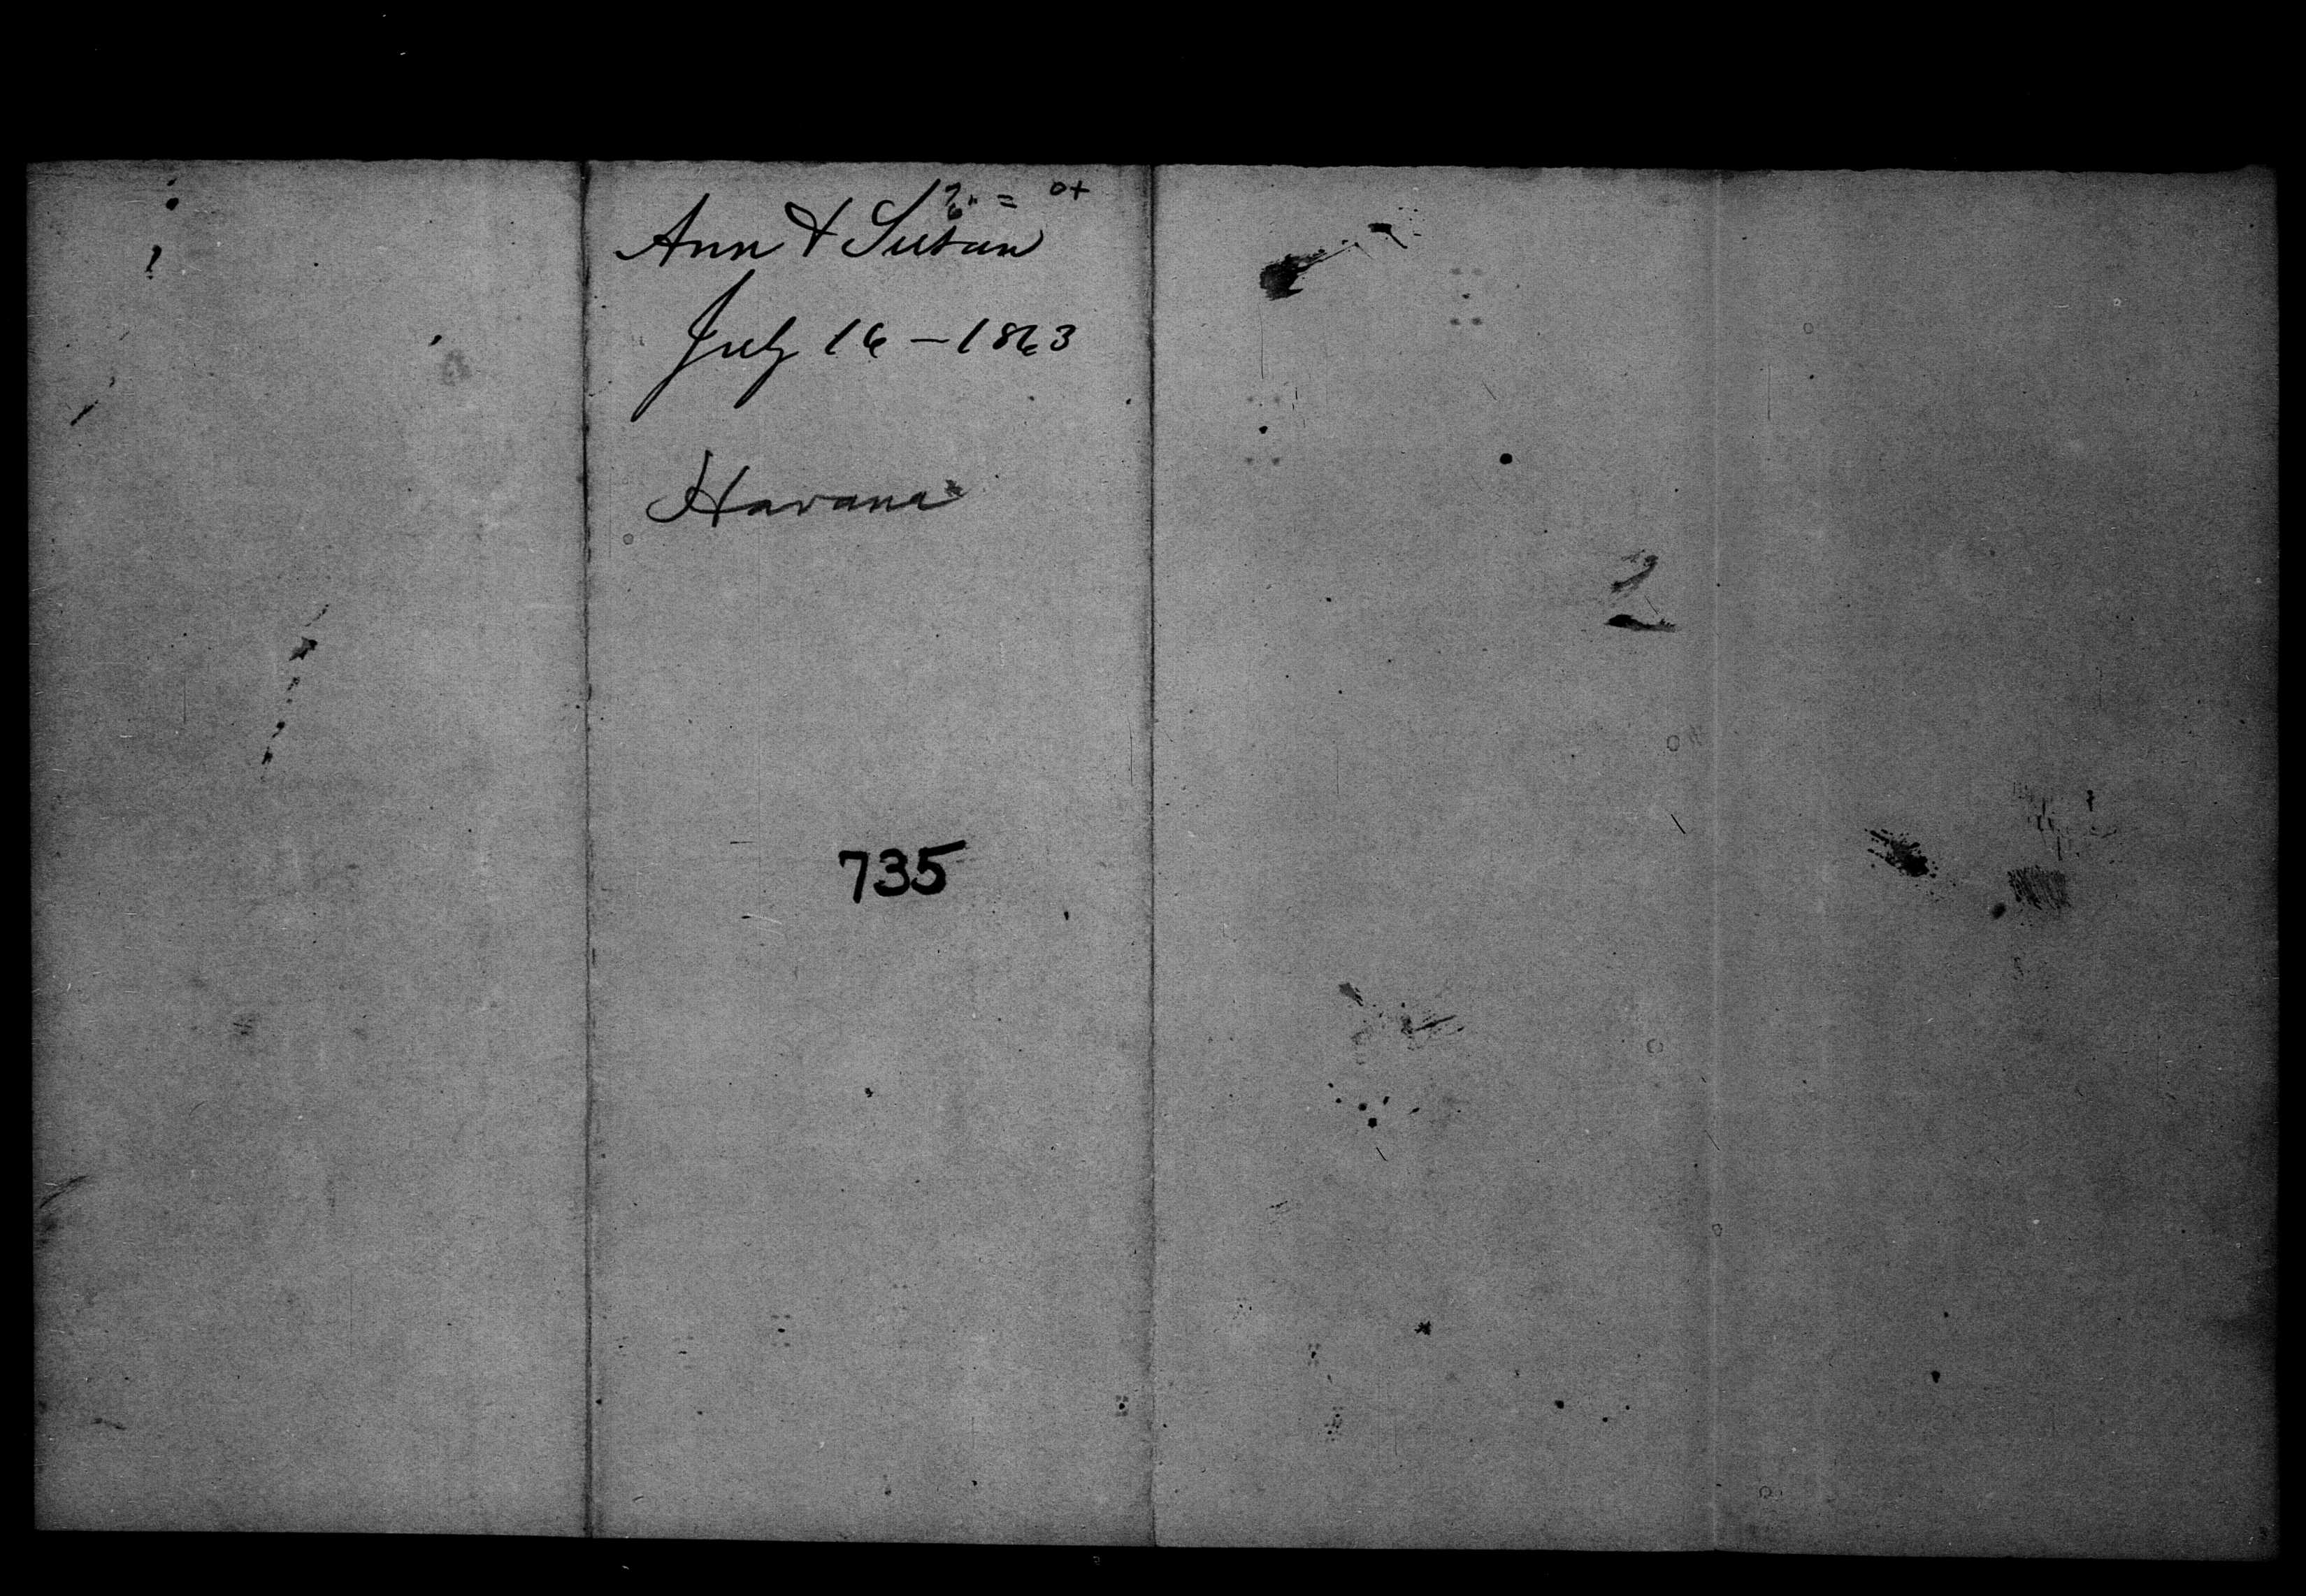 Ann & Susan
July 16 – 1863
Havana
735